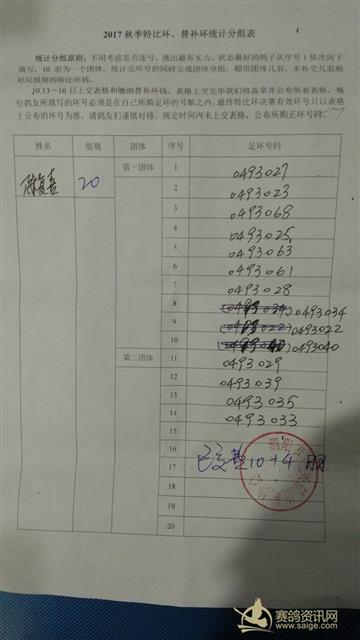 2017 秋季特比环、替补环统计分组表
统计分组原则：不用考虑是否连号，挑出最有实力、状态最好的鸽子从序号 1 依次向下
填写，10 羽为一个团体，统计完环号的同时完成团体分组，超出团体几羽，来补交几羽相
对应组别的特比环钱。
10.13—16 日上交表格和缴纳替补环钱，表格上交完毕我们将盖章并公布所有表格，每
位鸽友所填写的环号必须是在自己所购足环的号额之内，最终特比环决赛有效环号只以表格
上公布的环号为准，请鸽友们谨慎对待，规定时间内未上交表格，公布所购正环号码。
姓名 组别 团体 序号 足环号码
20 第一团体 1 0493027
2 0493023
3 0493068
4 0493025
5 0493063
6 0493061
7 0493028
8 0493034
9 0493022
10 0493040
第二团体 11 0493029
12 0493039
13 0493035
14 0493033
15
16
17 已交 10+4
18
19
20
赛鸽资讯网
www.saige.com